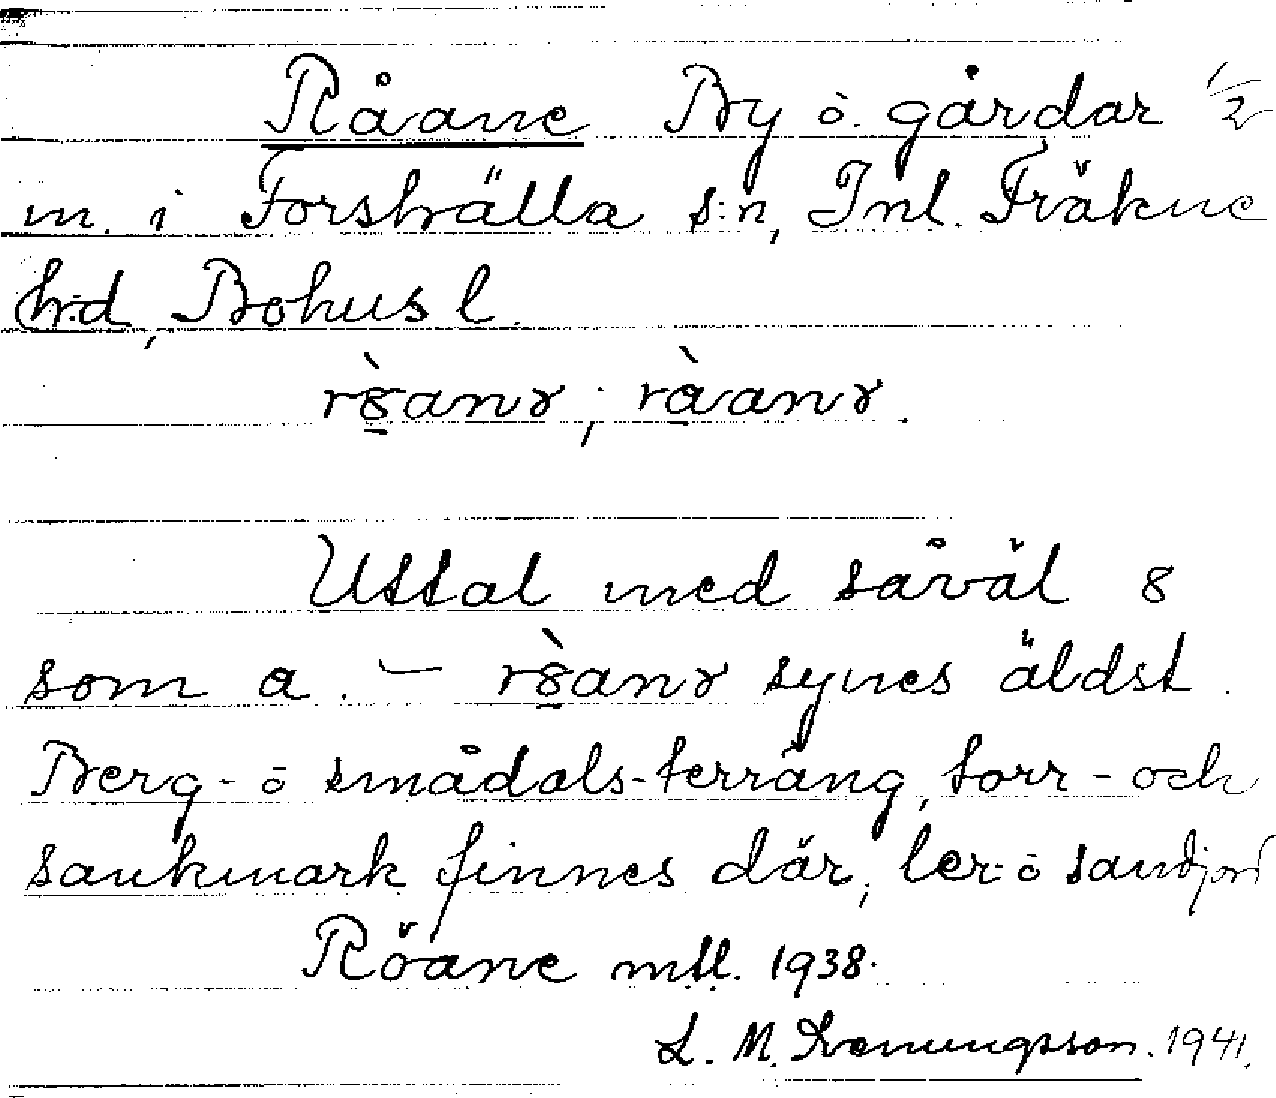 Råane By ö. gårdar 1/2
m. i Forshälla s:n, Inl. Fräkne
h:d, Bohus l.
rɞ̀anɤ; ràanɤ.
Uttal med såväl ɞ
som a. – rɞ̀anɤ synes äldst.
Berg- ö smådals-terräng, torr- och
sankmark finnes där, ler- ö sandjord
Röane mtl. 1938.
L. M. 1941.